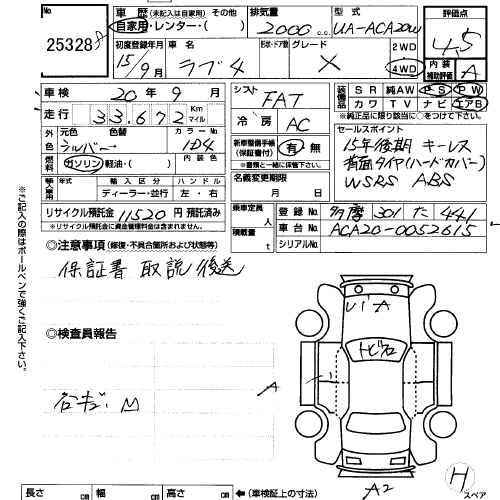 No.
25328
車歴 (未記入は自家用) その他
自家用・レンター・( )
排気量 2000 cc
型式 UA-ACA20W
評価点 4.5
初度登録年月 15/9月
車名 ラブ4
形状・ドア数
グレード X
2WD
4WD
内装
補助評価 A
車検 20年9月
走行 33,672 Km マイル
シフト FAT
冷房 AC
装備品 SR 純AW PS PW
カワ TV ナビ エアB
※純正品に限り該当に○をつけて下さい
外色 元色 シルバー 色替 カラーNo. 1D4
燃料 ガソリン・軽油・( ) 内装色
新車整備手帳 (保証書付) 有・無
※書類と一緒に保管して下さい。
セールスポイント
15年後期 キーレス
背面タイヤ(ハードカバー)
WSRS ABS
輸入車用 年式 輸入区分 ディーラー・並行 ハンドル 左・右
名義変更期限 月 日
リサイクル預託金 11520 円 預託済み
※リサイクル預託金に資金管理料金は含まれません。
乗車定員 人
積載量 t
登録No. 多摩 301 た 441
車台No. ACA20-0052615
シリアルNo.
◎注意事項 (修復・不具合箇所および状態等)
保証書 取説 後送
◎検査員報告
A
M
A
トビ石
A2
H
スペア
※ご記入の際はボールペンで強くご記入下さい。
長さ cm 幅 cm 高さ cm (車検証上の寸法)